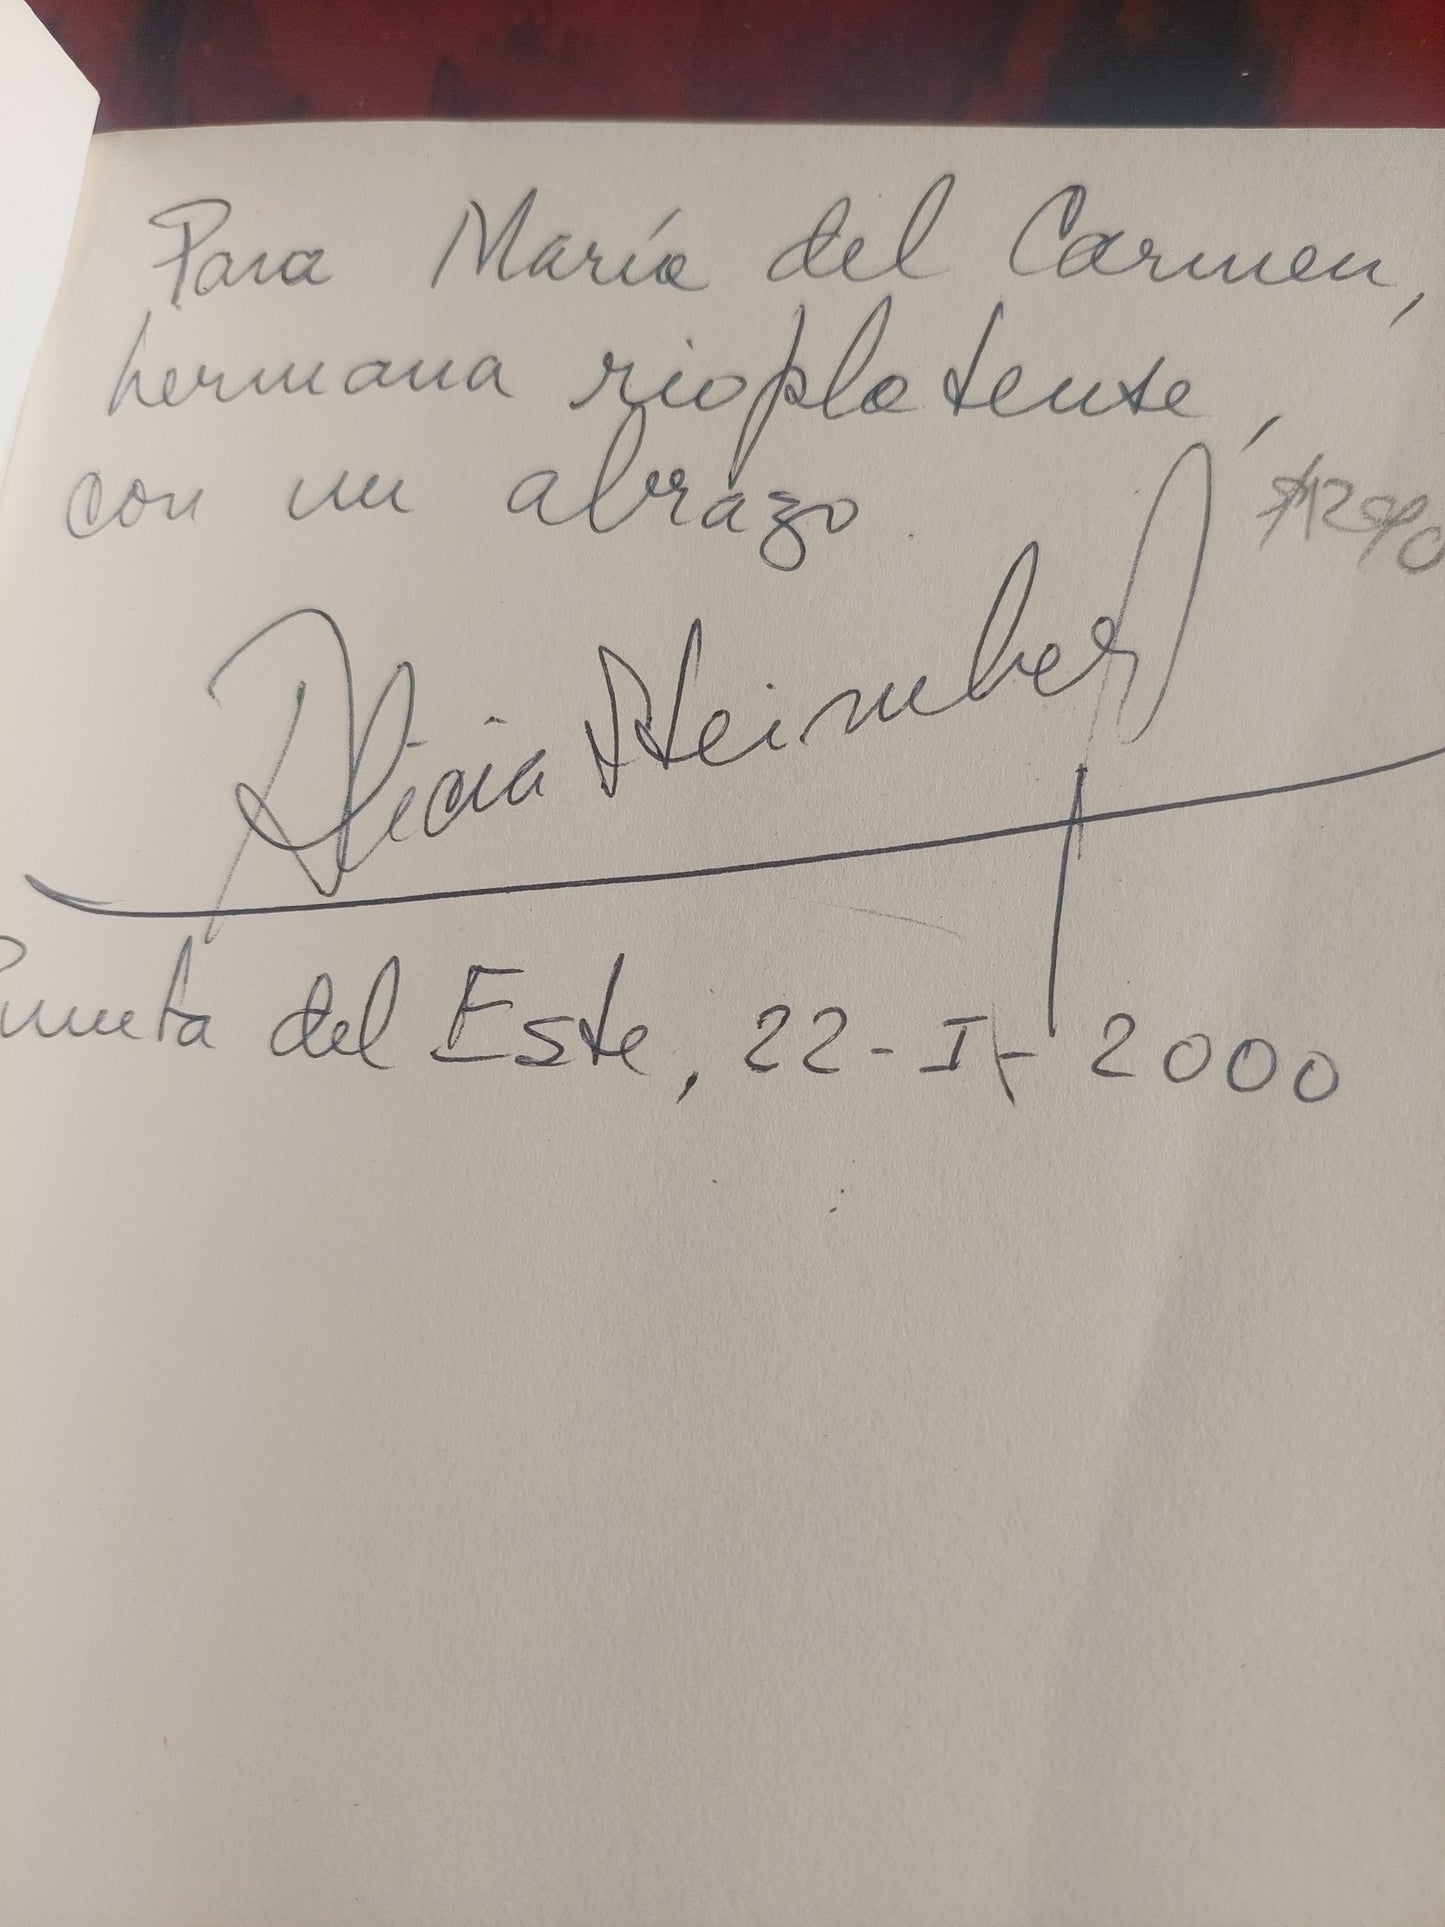 Para María del Carmen,
hermana rioplatense,
con un abrazo.
Alicia Steimberg
Punta del Este, 22-I-2000